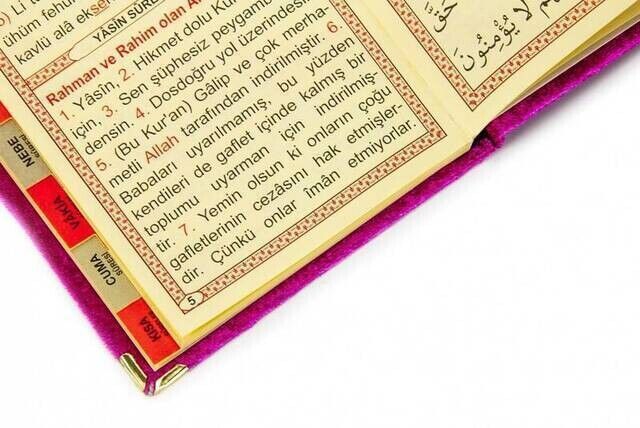 ühüm fehüm
kavlü alâ ekserihim
YÂSİN SÛRESİ
Rahman ve Rahim olan
1. Yâsîn, 2. Hikmet dolu
için, 3. Sen şüphesiz peygam
densin. 4. Dosdoğru yol üzerindesin.
5. (Bu Kur'an) Gâlip ve çok merha-
metli Allah tarafından indirilmiştir. 6.
Babaları uyarılmamış, bu yüzden
kendileri de gaflet içinde kalmış bir
toplumu uyarman için indirilmiş-
tir. 7. Yemin olsun ki onların çoğu
gafletlerinin cezasını hak etmişler-
dir. Çünkü onlar îmân etmiyorlar.
5
NEBE
VÂKIA
CUMA
SÛRESİ
KISA
حَقَّ
لَا يُؤْمِنُونَ